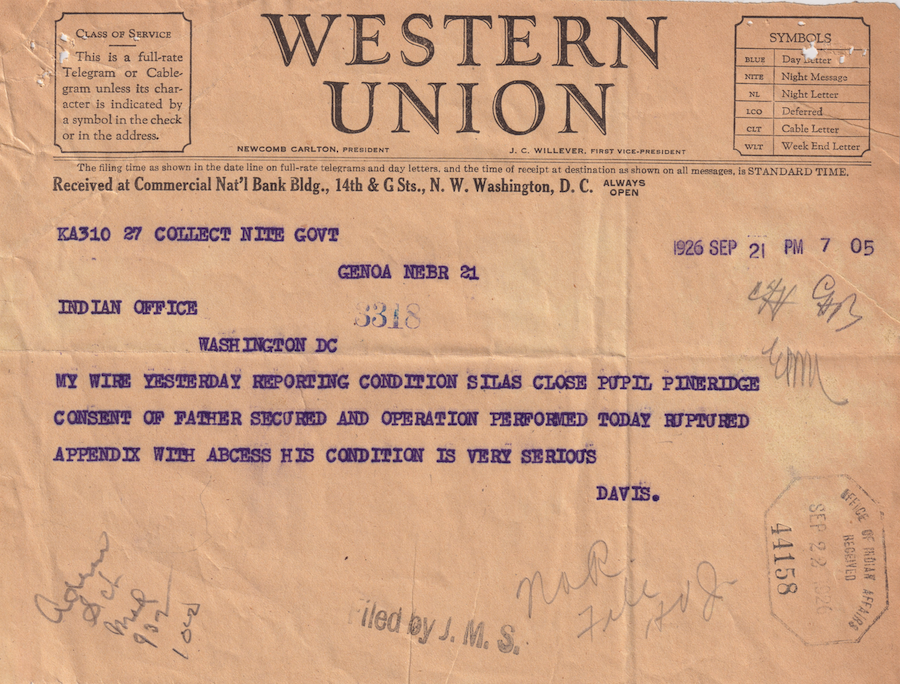 CLASS OF SERVICE
This is a full-rate
Telegram or Cable-
gram unless its char-
acter is indicated by
a symbol in the check
or in the address.
WESTERN
UNION
NEWCOMB CARLTON, PRESIDENT
J. C. WILLEVER, FIRST VICE-PRESIDENT
SYMBOLS
BLUE Day Letter
NITE Night Message
NL Night Letter
LCO Deferred
CLT Cable Letter
WLT Week End Letter
The filing time as shown in the date line on full-rate telegrams and day letters, and the time of receipt at destination as shown on all messages, is STANDARD TIME.
Received at Commercial Nat'l Bank Bldg., 14th & G Sts., N. W. Washington, D. C. ALWAYS OPEN
KA310 27 COLLECT NITE GOVT
1926 SEP 21 PM 7 05
GENOA NEBR 21
INDIAN OFFICE
3318
WASHINGTON DC
MY WIRE YESTERDAY REPORTING CONDITION SILAS CLOSE PUPIL PINERIDGE
CONSENT OF FATHER SECURED AND OPERATION PERFORMED TODAY RUPTURED
APPENDIX WITH ABCESS HIS CONDITION IS VERY SERIOUS
DAVIS.
OFFICE OF INDIAN AFFAIRS
RECEIVED
SEP 22 1926
44158
File
Filed by J. M. S.